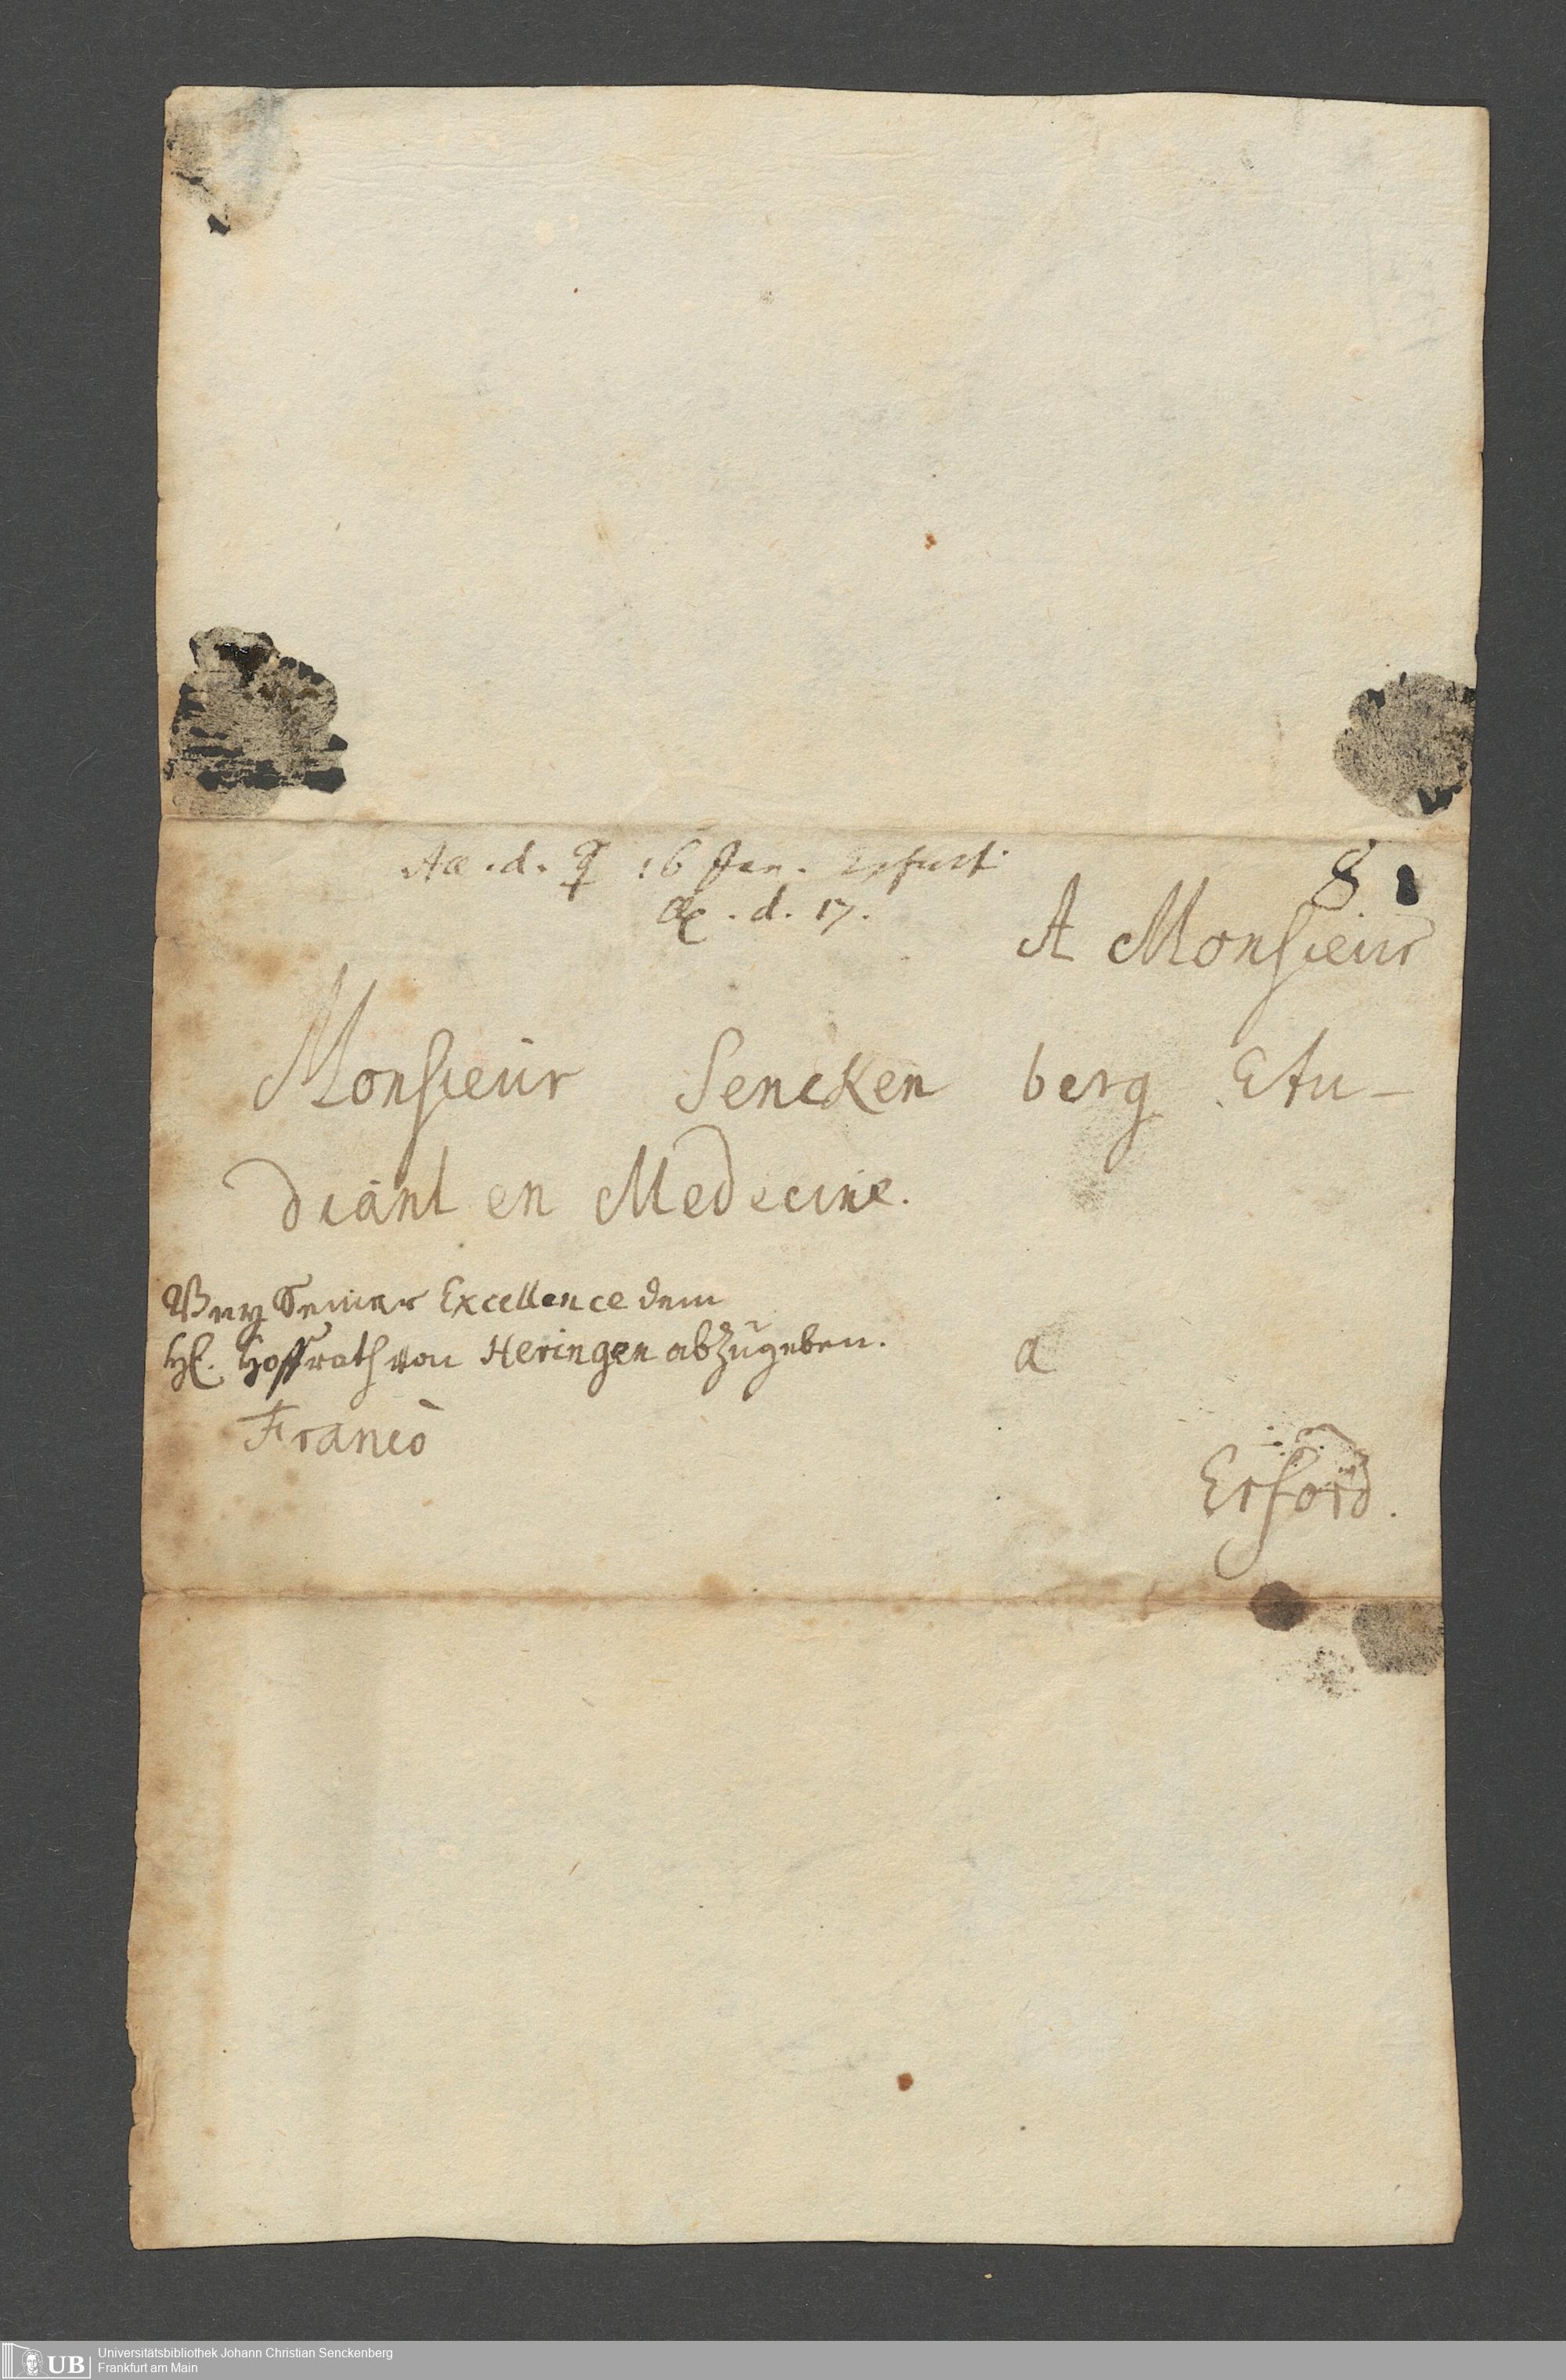 Acc. d. ♀ 16 Jan. Erfurt.
d. 17.
8
A Monsieur
Monsieur Sencken berg Etu-
diant en Medecine.
Bey Seiner Excellence dem
H. Hoffrath von Heringen abzugeben.
a
Franco
Erford.
UB
Universitätsbibliothek Johann Christian Senckenberg
Frankfurt am Main